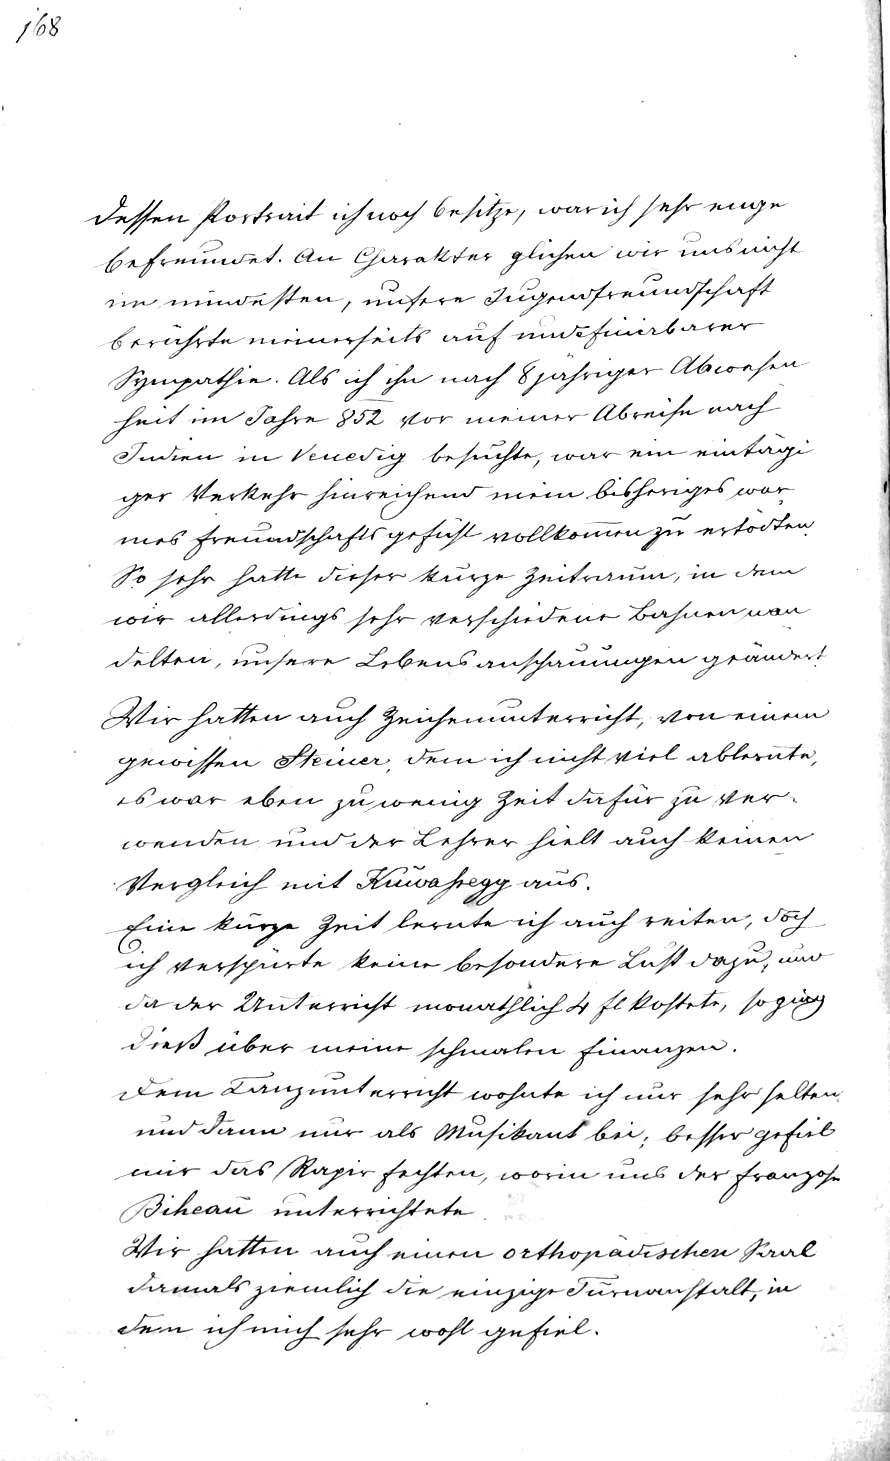 168
dessen Portrait ich noch besitze, war ich sehr enge
befreundet. An Charakter glichen wir uns nicht
im mindesten, unsere Jugendfreundschaft
berührte meinerseits auf undefinirbarer
Sympathie. Als ich ihn nach 8jähriger Abwesen
heit im Jahre 852 vor meiner Abreise nach
Indien in Venedig besuchte, war ein eintägi
ger Verkehr hinreichend mein bisheriges war
mes Freundschaftsgefühl vollkommen zu ertödten.
So sehr hatte dieser kurze Zeitraum, in dem
wir allerdings sehr verschiedene Bahnen wan
delten, unsere Lebensanschauungen geändert.
Wir hatten auch Zeichenunterricht, von einem
gewissen Steiner, dem ich nicht viel ablernte,
es war eben zu wenig Zeit dafür zu ver-
wenden und der Lehrer hielt auch keinen
Vergleich mit aus.
Eine kurze Zeit lernte ich auch reiten, doch
ich verspürte keine besondere Lust dazu, und
da der Unterricht monathlich 4 fl kostete, so ging
dieß über meine schmalen Finanzen.
Dem Tanzunterricht wohnte ich nur sehr selten
und dann nur als Musikant bei; besser gefiel
mir das Rapir fechten, worin uns der Franzose
Biheau unterrichtete.
Wir hatten auch einen orthopädischen Saal
damals ziemlich die einzige Turnanstalt, in
dem ich mich sehr wohl gefiel.